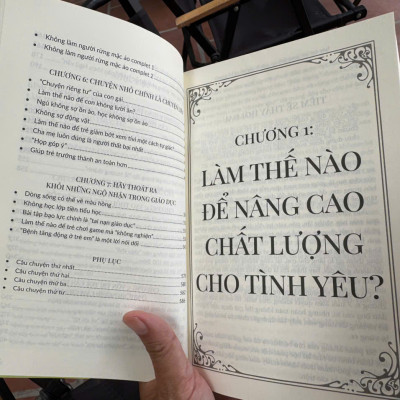 Không làm người rừng mặc áo complet 1
Không làm người rừng mặc áo complet 2
CHƯƠNG 6: CHUYỆN NHỎ CHÍNH LÀ CHUYỆN LỚN
"Chuyện riêng tư" của con gái
Làm thế nào để con không lười ăn?
Ngủ không sợ ồn ào, học không sợ ồn ào
Không sợ động vật
Làm thế nào để trẻ giảm bớt xem tivi một cách tự giác?
Cha mẹ luôn đúng là người thất bại nhất
"Họp góp ý"
Giúp trẻ trưởng thành an toàn hơn
CHƯƠNG 7: HÃY THOÁT RA
KHỎI NHỮNG NGỘ NHẬN TRONG GIÁO DỤC
Dòng sông có thể vẽ màu hồng
Không học lớp tiền tiểu học
Bài tập bạo lực chính là "tai nạn giáo dục"
Làm thế nào để trẻ chơi game mà "không nghiện"
"Bệnh tăng động ở trẻ em" là một lời nói dối
PHỤ LỤC
Câu chuyện thứ nhất
Câu chuyện thứ hai
Câu chuyện thứ ba
Câu chuyện thứ tư
CHƯƠNG 1:
LÀM THẾ NÀO
ĐỂ NÂNG CAO
CHẤT LƯỢNG
CHO TÌNH YÊU?